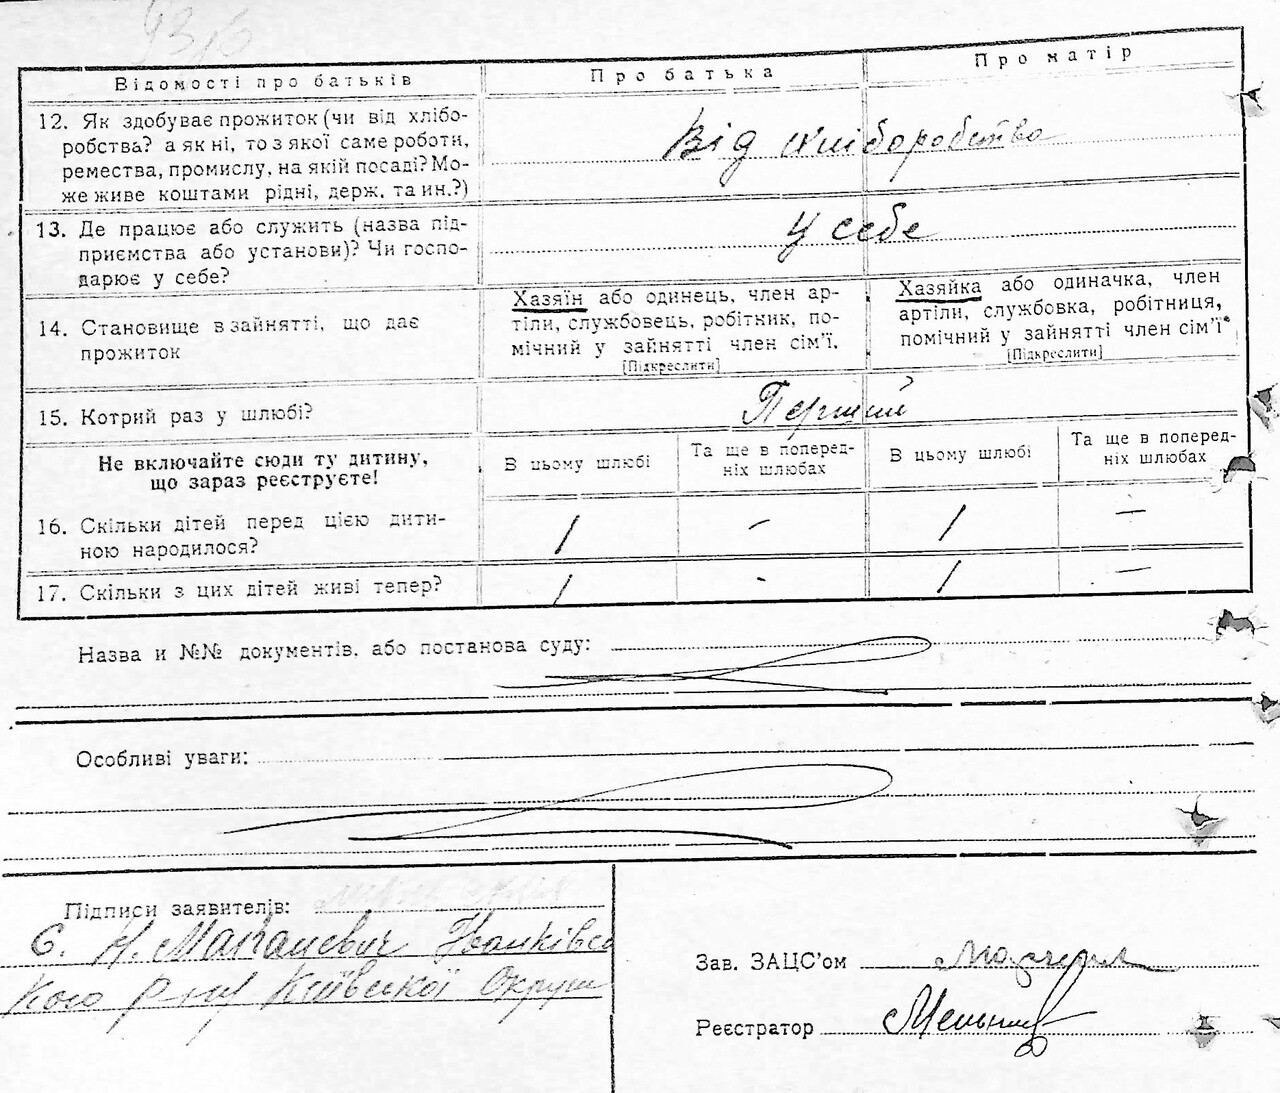 Відомості про батьків
Про батька
Про матір
12. Як здобуває прожиток (чи від хлібо-
робства? а як ні, то з якої саме роботи,
ремества, промислу, на якій посаді? Мо-
же живе коштами рідні, держ. та ин.?)
Від хліборобства
13. Де працює або служить (назва під-
приємства або установи)? Чи госпо-
дарює у себе?
у себе
14. Становище в зайнятті, що дає
прожиток
Хазяїн або одинець, член ар-
тіли, службовець, робітник, по-
мічний у зайнятті член сім'ї.
[Підкреслити]
Хазяйка або одиначка, член
артіли, службовка, робітниця,
помічний у зайнятті член сім'ї
[Підкреслити]
15. Котрий раз у шлюбі?
Перший
Не включайте сюди ту дитину,
що зараз реєструєте!
В цьому шлюбі
Та ще в поперед-
ніх шлюбах
В цьому шлюбі
Та ще в поперед-
ніх шлюбах
16. Скільки дітей перед цією дити-
ною народилося?
1 - 1 —
17. Скільки з цих дітей живі тепер?
1 - 1 —
Назва и №№ документів, або постанова суду:
Особливі уваги:
Підписи заявителів:
С. Н. Макалевич Іванківсь
кого р-ну Київської Округи
Зав. ЗАЦС'ом
Реєстратор Мельник